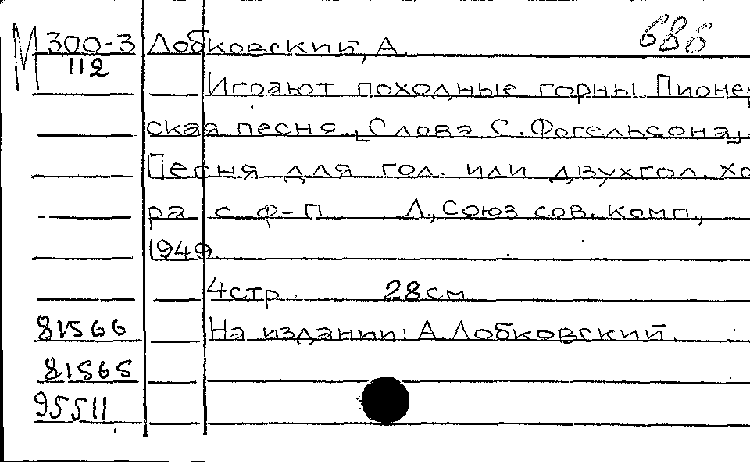 М 300-3 Лобковский, А. 686
112
Играют походные горны. Пионер
ская песня. [Слова С. Фогельсона].
Песня для гол. или двухгол. хо
ра с ф-п. Л., Союз сов. комп.,
1949.
4 стр. 28 см
81566 На издании: А. Лобковский.
81565
95511